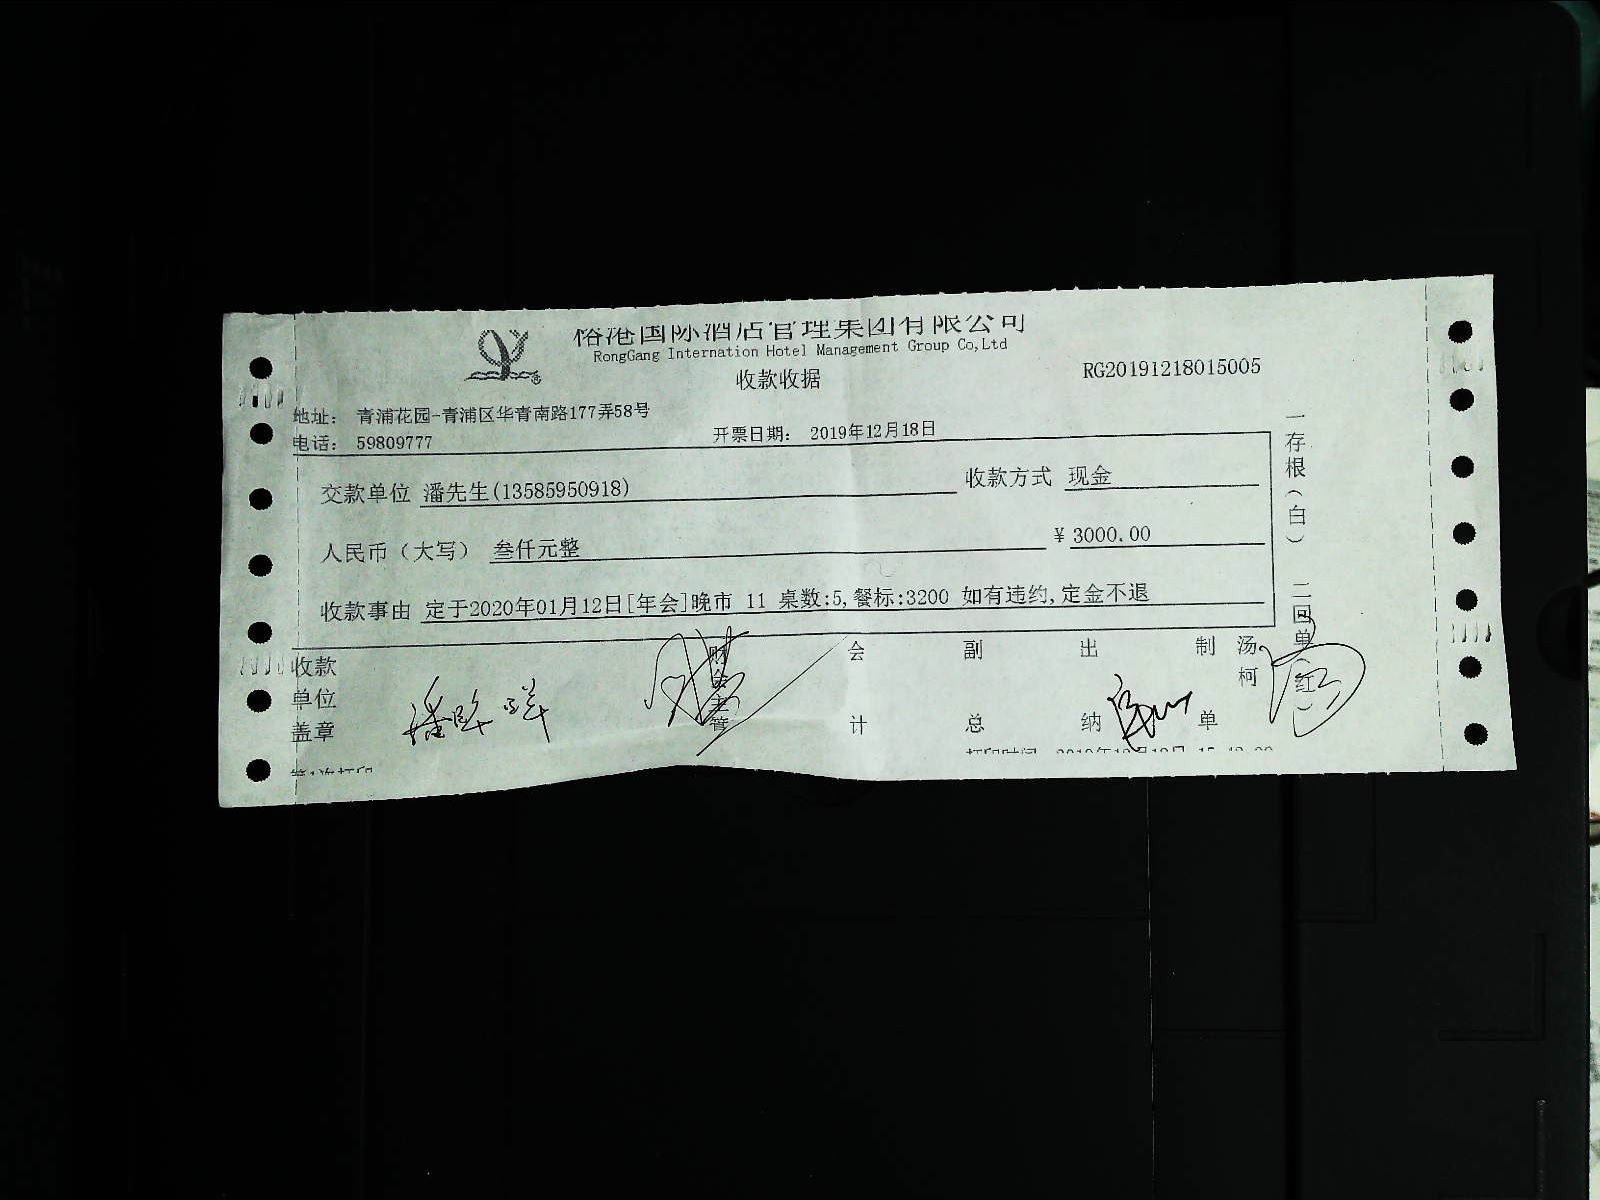 国际酒店管理集团有限公司
RongGang Internation Hotel Management Group Co,Ltd
收款收据
RG20191218015005
地址： 青浦花园-青浦区华青南路177弄58号
电话： 59809777
开票日期： 2019年12月18日
交款单位 潘先生(13585950918) 收款方式 现金
人民币（大写） 叁仟元整 ￥3000.00
收款事由 定于2020年01月12日[年会]晚市 11 桌数:5,餐标:3200 如有违约,定金不退
一存根（白） 二回单（红）
收款单位盖章
财会主管
会计
副总
出纳
制单
汤柯